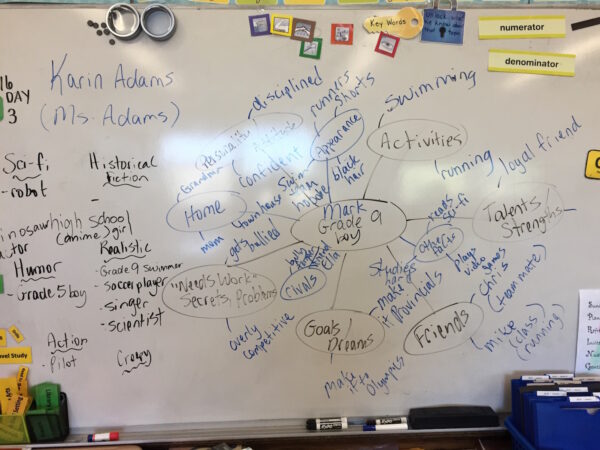 Key Words
numerator
denominator
16
DAY
3
Karin Adams
(Ms. Adams)
Sci-fi
- robot
Historical
Fiction
-
high school
(anime) girl
Realistic
- Grade 9 Swimmer
- soccer player
- singer
- scientist
Humor
- Grade 5 boy
Action
- Pilot
Crazy
Mark
Grade 9
boy
Personality
disciplined
confident
Appearance
runners
shorts
black
hair
Activities
swimming
running
Talents
Strengths
loyal friend
Other Facts
reads
sci-fi
plays
video
games
studies
hard
Friends
Chris
(team mate)
mike
(class)
(running)
Goals/
Dreams
make
it
Provincials
make
it to
Olympics
rivals
Ella
"Needs Work"
Secrets, Problems
gets
bullied
overly
competitive
Home
Grandma
town house
mum
EXPO